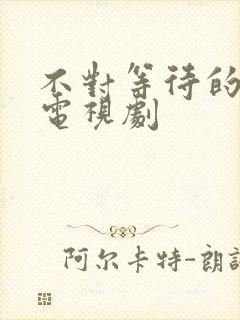 不對等待的
電視劇
阿尔卡特-朗